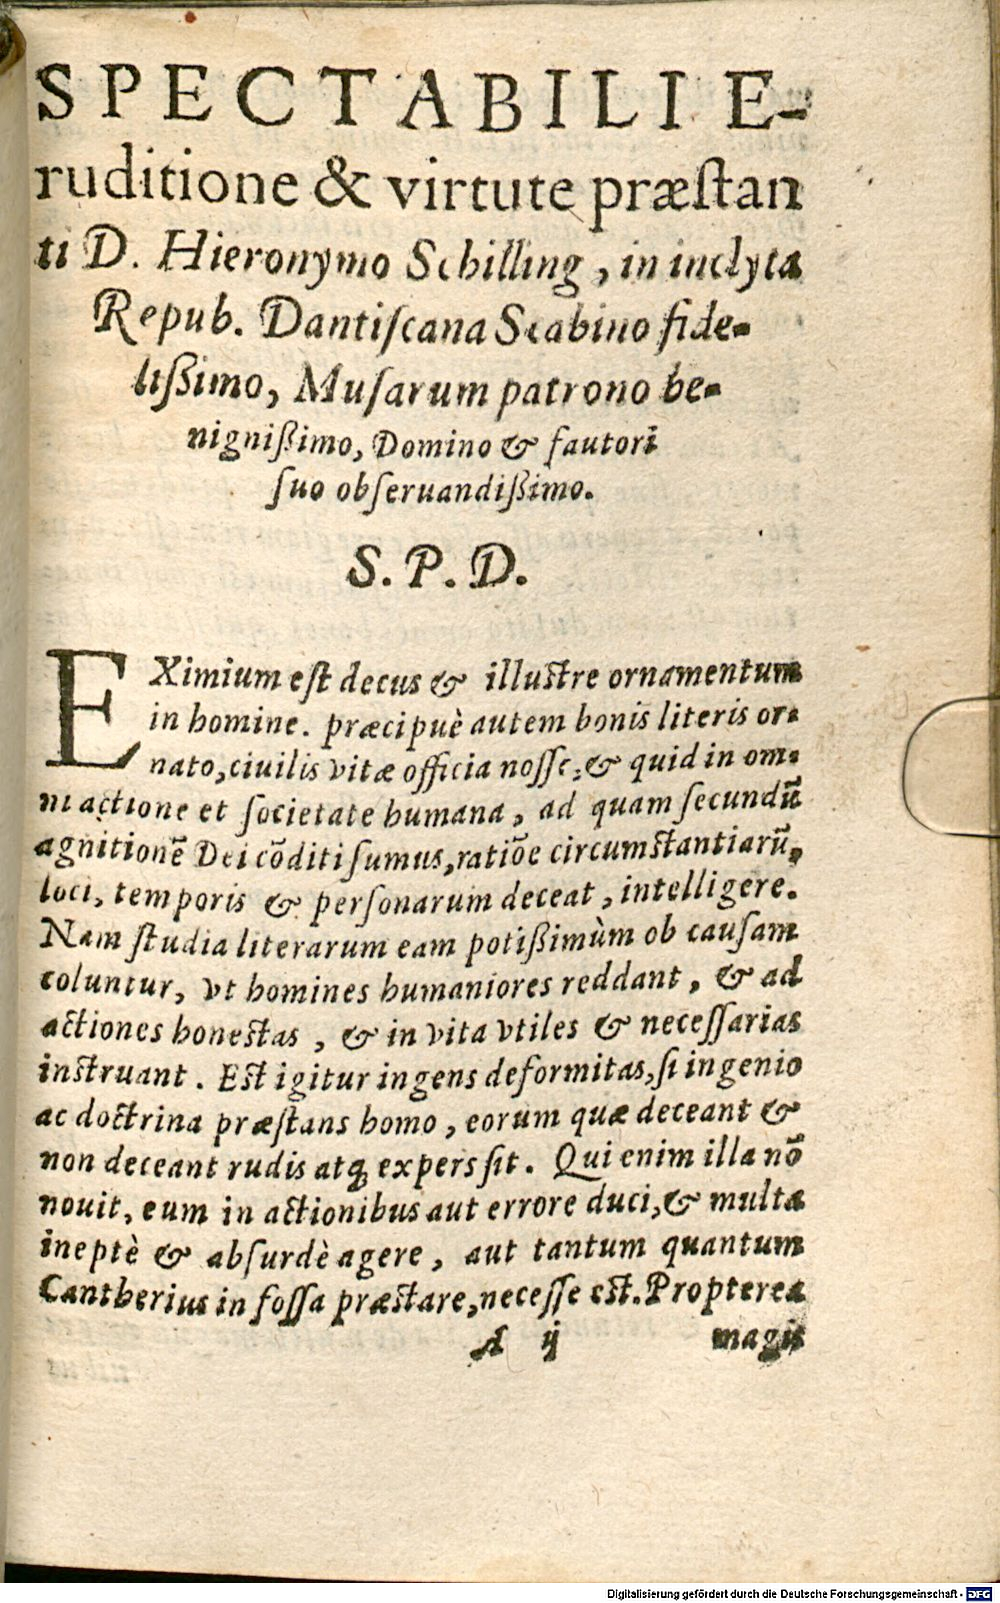 SPECTABILI E-
ruditione & virtute præſtan
ti D. Hieronymo Schilling, in inclyta
Repub. Dantiſcana Scabino fide-
lißimo, Muſarum patrono be-
nignißimo, Domino & fautori
ſuo obſeruandißimo.
S. P. D.
EXimium eſt decus & illuſtre ornamentum
in homine. præcipuè autem bonis literis or-
nato, ciuilis vitæ officia noſſe, & quid in om-
ni actione et ſocietate humana, ad quam ſecundũ
agnitionẽ Dei cõditi ſumus, ratiõe circumſtantiarũ,
loci, temporis & perſonarum deceat, intelligere.
Nam ſtudia literarum eam potißimùm ob cauſam
coluntur, vt homines humaniores reddant, & ad
actiones honeſtas, & in vita vtiles & neceſſarias
inſtruant. Eſt igitur ingens deformitas, ſi ingenio
ac doctrina præſtans homo, eorum quæ deceant &
non deceant rudis atq; expers ſit. Qui enim illa nõ
nouit, eum in actionibus aut errore duci, & multa
ineptè & abſurdè agere, aut tantum quantum
Cantherius in foſſa præſtare, neceſſe eſt. Propterea
A ij magis
Digitalisierung gefördert durch die Deutsche Forschungsgemeinschaft - DFG